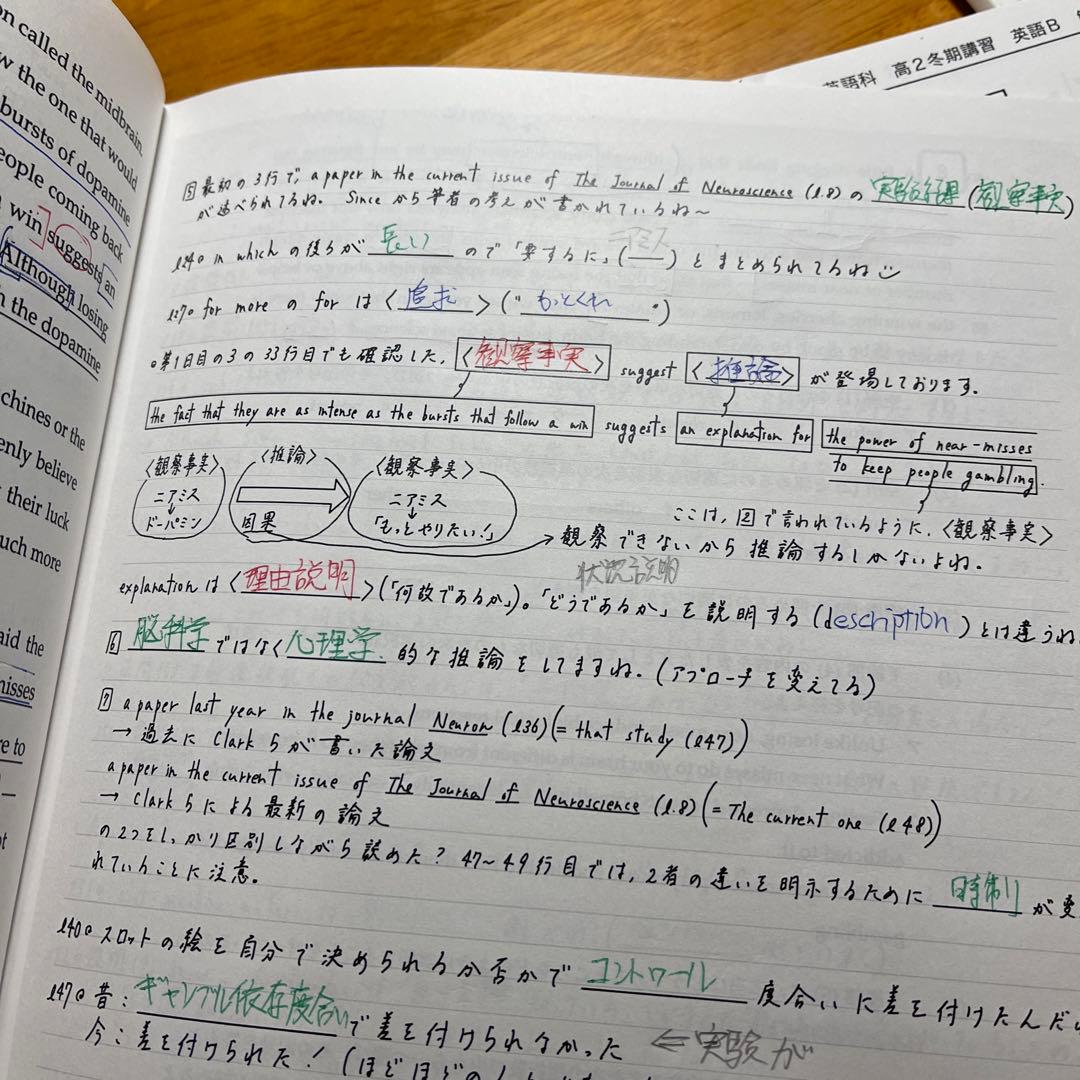 on called the midbrain.
w the one that would
bursts of dopamine
eople coming back
win] suggests an
Although losing
the dopamine
chines or the
enly believe
their luck
uch more
aid the
misses
re to
英語科 高2冬期講習 英語B
5 最初の3行で, a paper in the current issue of The Journal of Neuroscience (l.8) の 実験結果 (観察事実)
が述べられてるね。 Since から筆者の考えが書かれているね〜
l24◦ in which の後ろが 長い ので「要するに」( ニアミス ) とまとめられてるね
l27◦ for more の for は〈追求〉("もっとくれ")
◦第1日目の3の33行目でも確認した,〈観察事実〉 suggest 〈推論〉が登場しております。
the fact that they are as intense as the bursts that follow a win suggests an explanation for the power of near-misses
to keep people gambling.
〈観察事実〉 〈推論〉 〈観察事実〉
ニアミス ニアミス
↓ ↓
ドーパミン 因果 「もっとやりたい!」
ここは, 図で言われているように,〈観察事実〉
→ 観察できないから推論するしかないよね。
状況説明
explanation は〈理由説明〉(「何故であるか」)。「どうであるか」を説明する (description) とは違うね
6 脳科学 ではなく 心理学 的な推論をしてますね。(アプローチを変えてる)
7 a paper last year in the journal Neuron (l36) (= that study (l47))
→ 過去に Clark らが書いた論文
a paper in the current issue of The Journal of Neuroscience (l.8) (= The current one (l48))
→ Clark らによる最新の論文
の2つをしっかり区別しながら読めた? 47~49行目では, 2者の違いを明示するために 時制 が変
れていることに注意。
l40◦ スロットの絵を自分で決められるか否かで コントロール 度合いに差を付けたんだ
l47◦ 昔: ギャンブル依存度合い で差を付けられなかった ⇐ 実験が
今: 差を付けられた! (ほどほどの